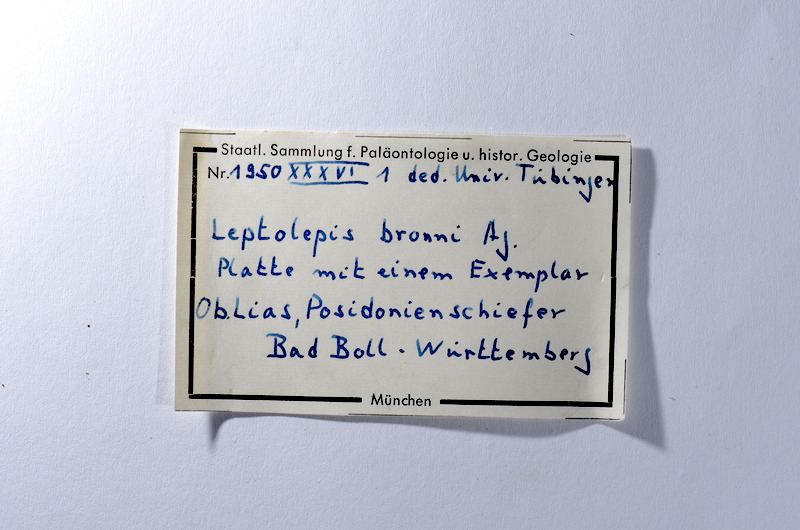 Staatl. Sammlung f. Paläontologie u. histor. Geologie
Nr. 1950 XXXVI 1 ded. Univ. Tübingen
Leptolepis bronni Ag.
Platte mit einem Exemplar
Ob. Lias, Posidonienschiefer
Bad Boll - Württemberg
München